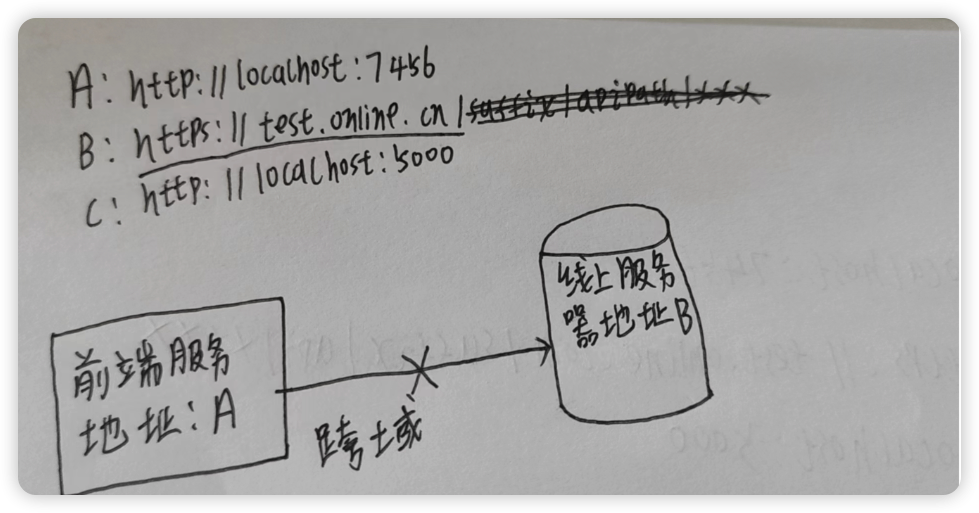 A: http://localhost:7456
B: https://test.online.cn/suffix/apipath/xxx
C: http://localhost:5000
线上服务
器地址B
前端服务
地址:A
跨域